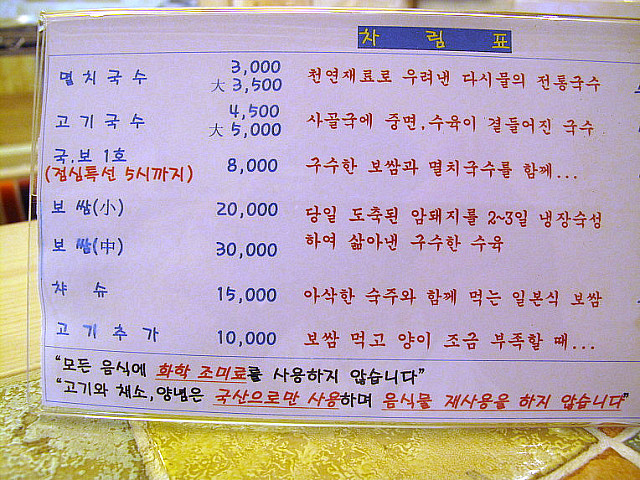 차 림 표
멸치국수 3,000 천연재료로 우려낸 다시물의 전통국수
大 3,500
고기국수 4,500 사골국에 중면,수육이 곁들어진 국수
大 5,000
국.보 1호 8,000 구수한 보쌈과 멸치국수를 함께...
(점심특선 5시까지)
보 쌈(小) 20,000 당일 도축된 암퇘지를 2~3일 냉장숙성
보 쌈(中) 30,000 하여 삶아낸 구수한 수육
챠 슈 15,000 아삭한 숙주와 함께 먹는 일본식 보쌈
고기추가 10,000 보쌈 먹고 양이 조금 부족할 때...
"모든 음식에 화학 조미료를 사용하지 않습니다"
"고기와 채소,양념은 국산으로만 사용하며 음식물 재사용을 하지 않습니다"